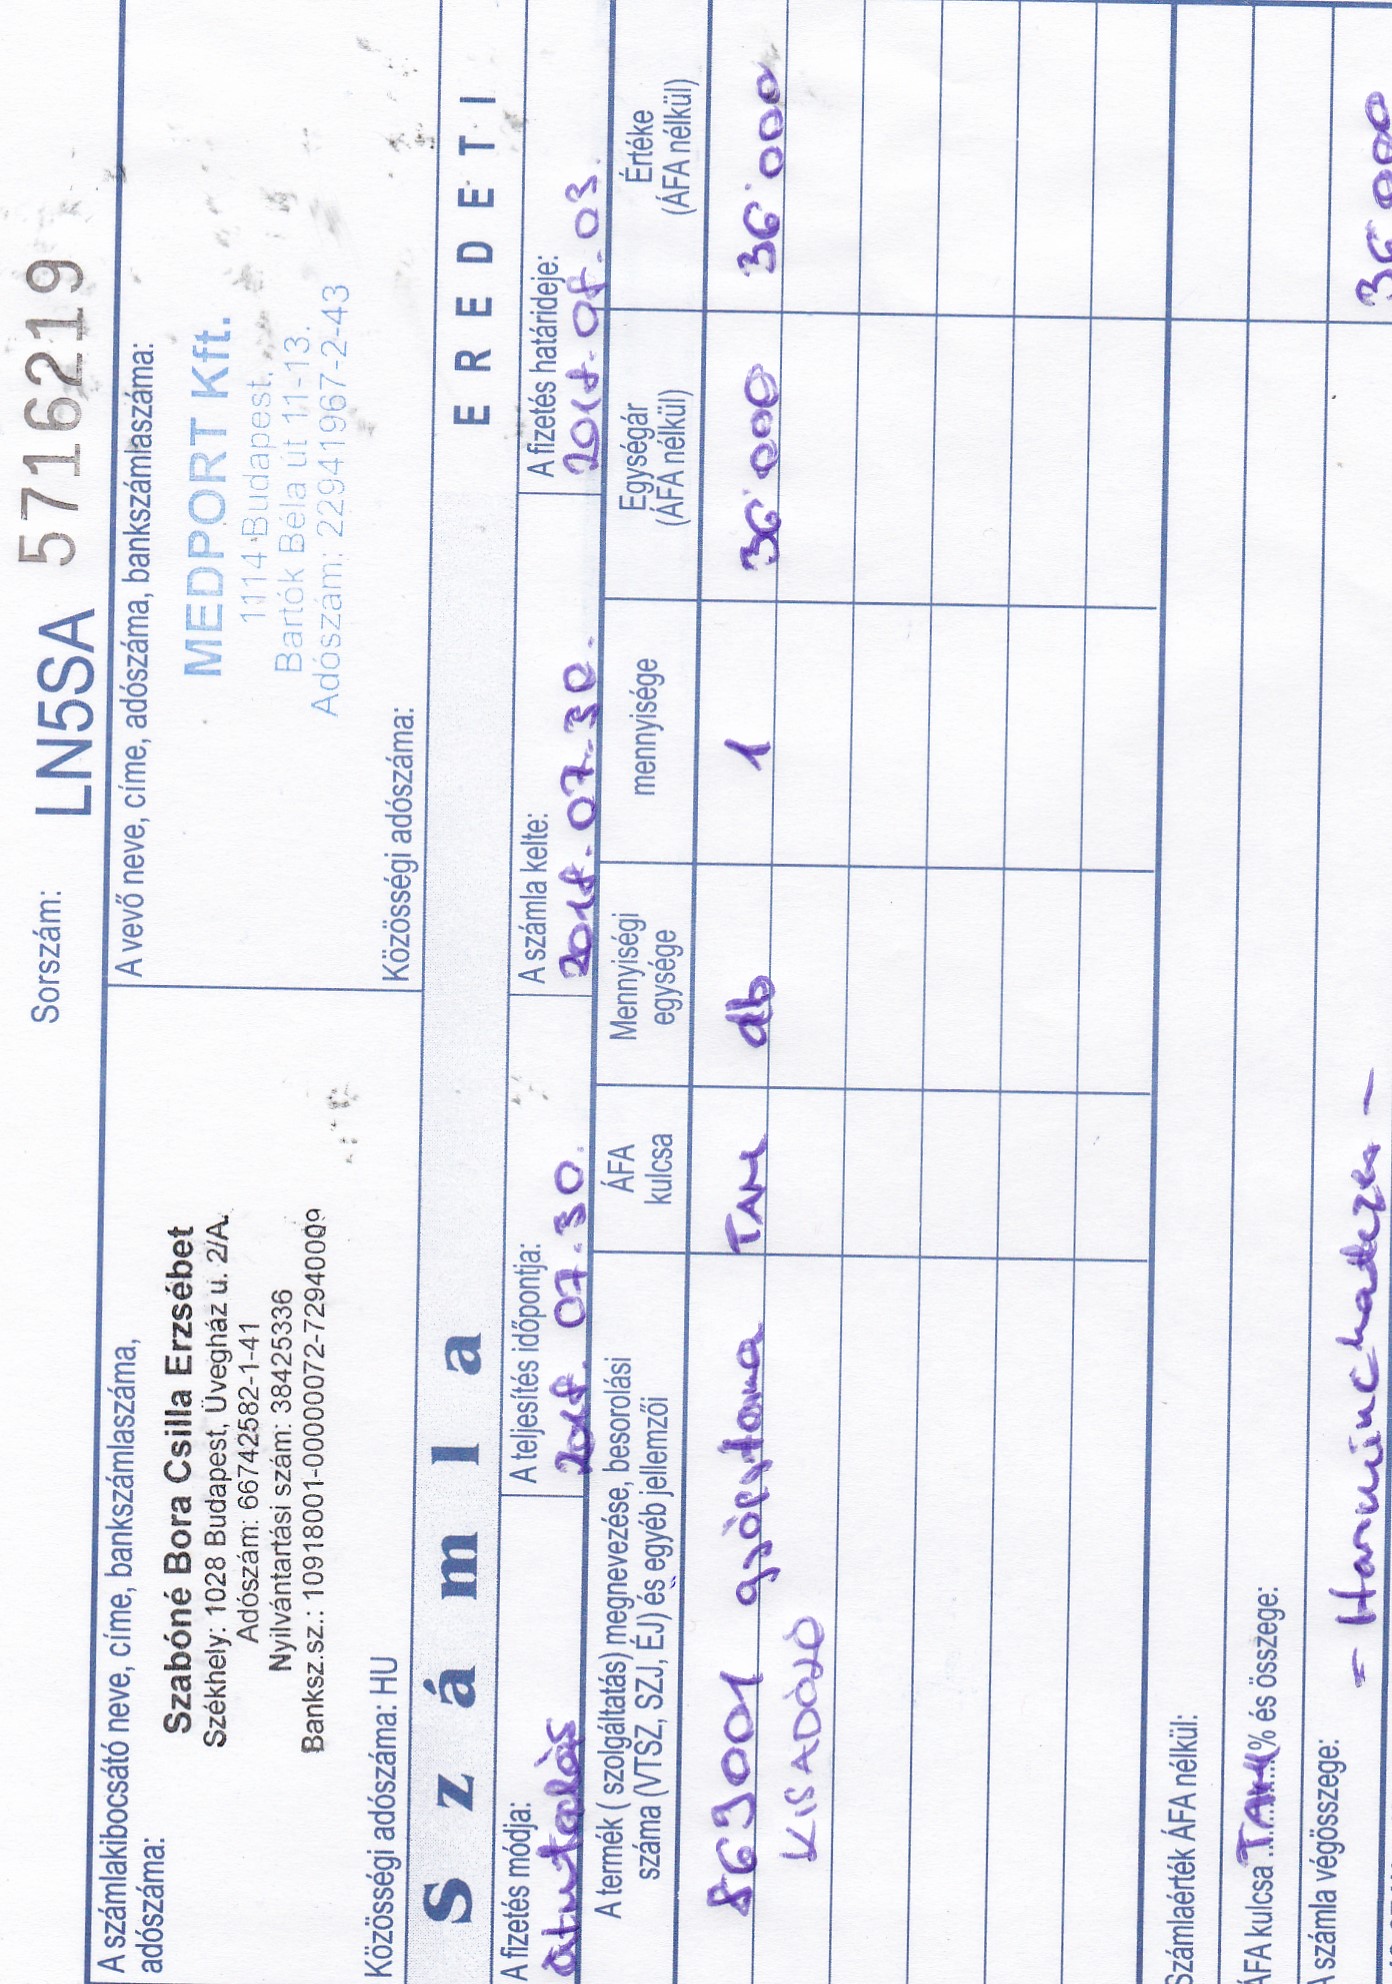 Sorszám: LN5SA 5716219
A számlakibocsátó neve, címe, bankszámlaszáma,
adószáma:
Szabóné Bora Csilla Erzsébet
Székhely: 1028 Budapest, Üvegház u. 2/A.
Adószám: 66742582-1-41
Nyilvántartási szám: 38425336
Banksz.sz.: 10918001-00000072-72940009
Közösségi adószáma: HU
A vevő neve, címe, adószáma, bankszámlaszáma:
MEDPORT Kft.
1114 Budapest,
Bartók Béla út 11-13.
Adószám: 22941967-2-43
Közösségi adószáma:
Számla EREDETI
A fizetés módja:
átutalás
A teljesítés időpontja:
2018. 07.30.
A számla kelte:
2018.07.30.
A fizetés határideje:
2018.08.03.
A termék ( szolgáltatás) megnevezése, besorolási
száma (VTSZ, SZJ, ÉJ) és egyéb jellemzői
ÁFA
kulcsa
Mennyiségi
egysége
mennyisége
Egységár
(ÁFA nélkül)
Értéke
(ÁFA nélkül)
869001 gyógytorna TAM db 1 36'000 36'000
KISADÓZÓ
Számlaérték ÁFA nélkül:
ÁFA kulcsa TAM % és összege:
A számla végösszege:
- Harminchatezer -
36 000